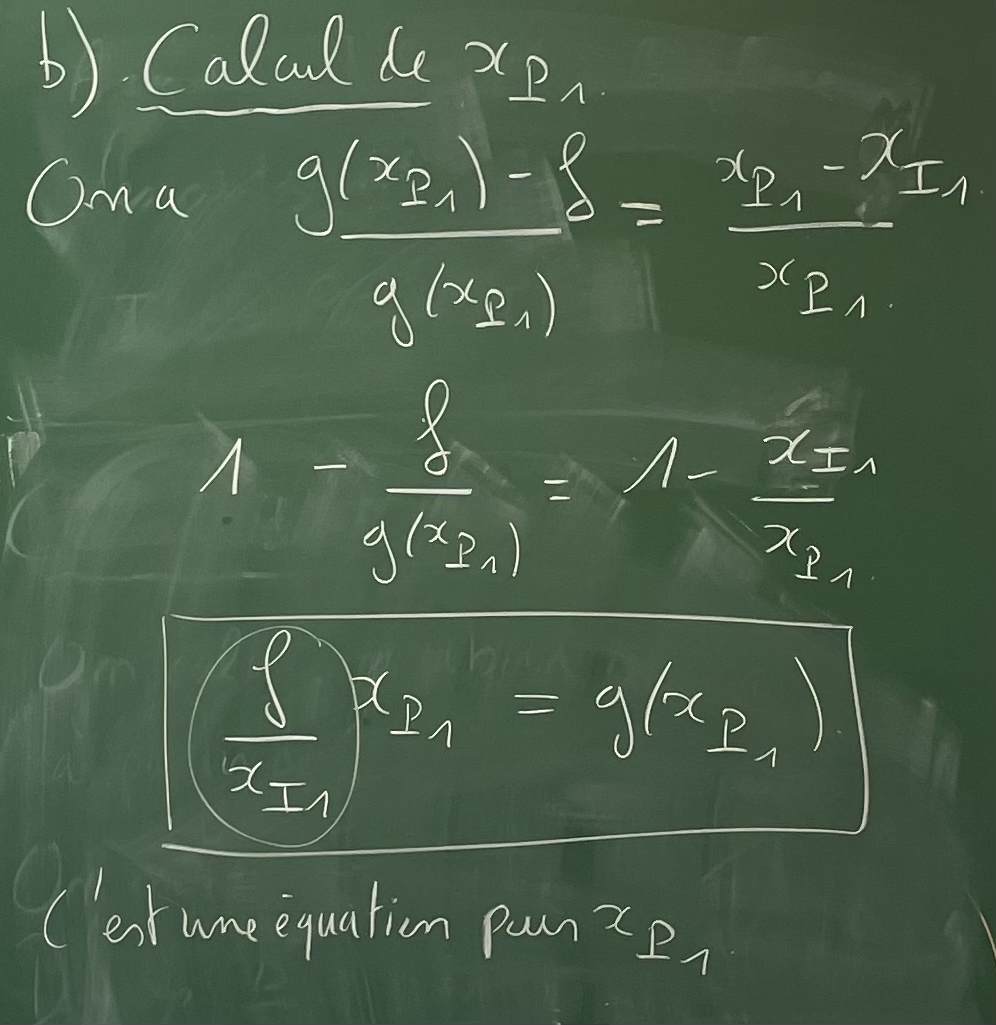 b). Calcul de x_{P_1}.
On a \frac{g(x_{P_1}) - f}{g(x_{P_1})} = \frac{x_{P_1} - x_{I_1}}{x_{P_1}}.
1 - \frac{f}{g(x_{P_1})} = 1 - \frac{x_{I_1}}{x_{P_1}}.
\frac{f}{x_{I_1}} x_{P_1} = g(x_{P_1}).
C'est une équation pour x_{P_1}.